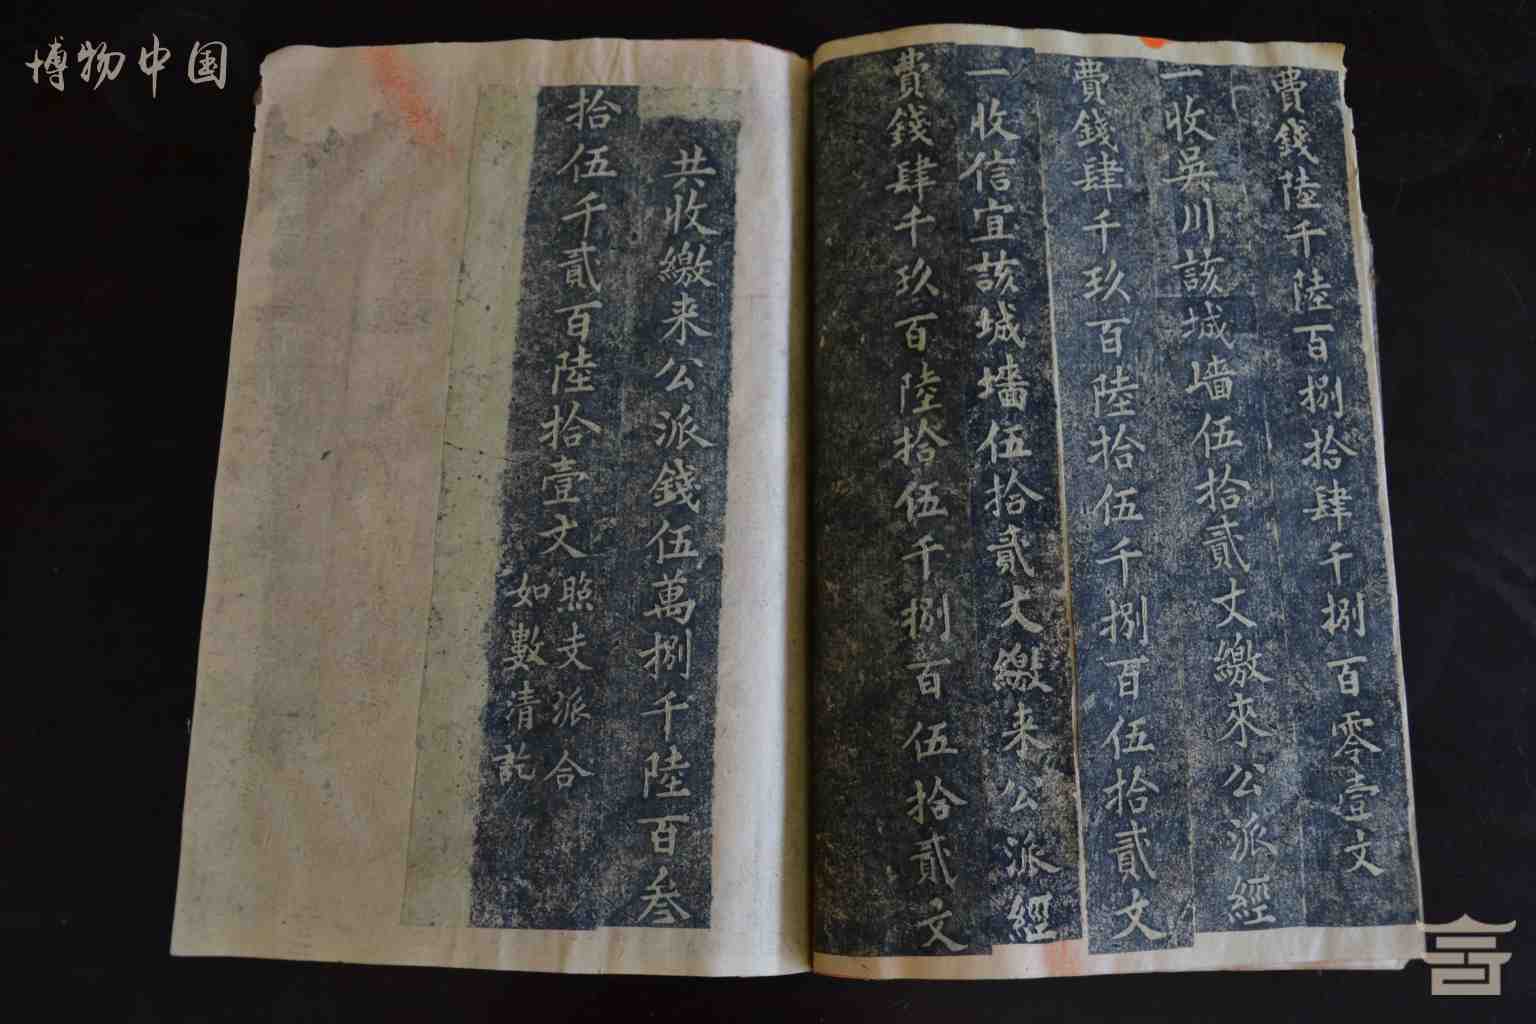 博物中国
費錢陸千陸百捌拾肆千捌百零壹文
一收吳川該城墻伍拾貳丈繳來公派經
費錢肆千玖百陸拾伍千捌百伍拾貳文
一收信宜該城墻伍拾貳丈繳来公派經
費錢肆千玖百陸拾伍千捌百伍拾貳文
共收繳来公派錢伍萬捌千陸百叁
拾伍千貳百陸拾壹文
照支派合
如數清訖